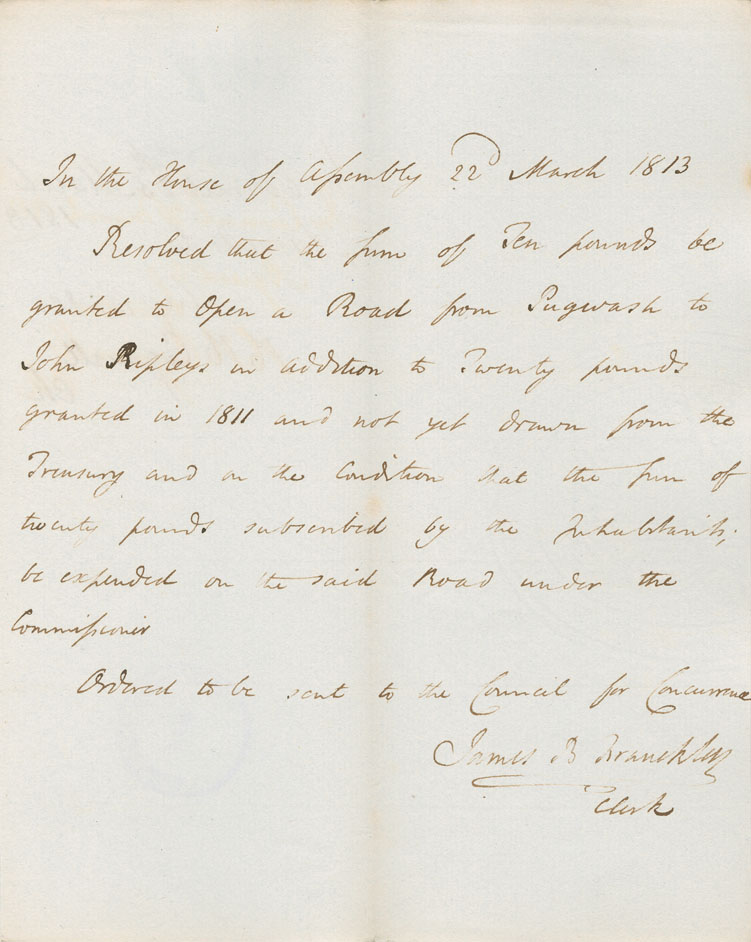 In the House of Assembly 22d March 1813
Resolved that the sum of Ten pounds be
granted to Open a Road from Pugwash to
John Ripleys in addition to Twenty pounds
granted in 1811 and not yet drawn from the
Treasury and on the Condition that the sum of
twenty pounds subscribed by the Inhabitants,
be expended on the said Road under the
Commissioner
Ordered to be sent to the Council for Concurrence
James B
Clerk